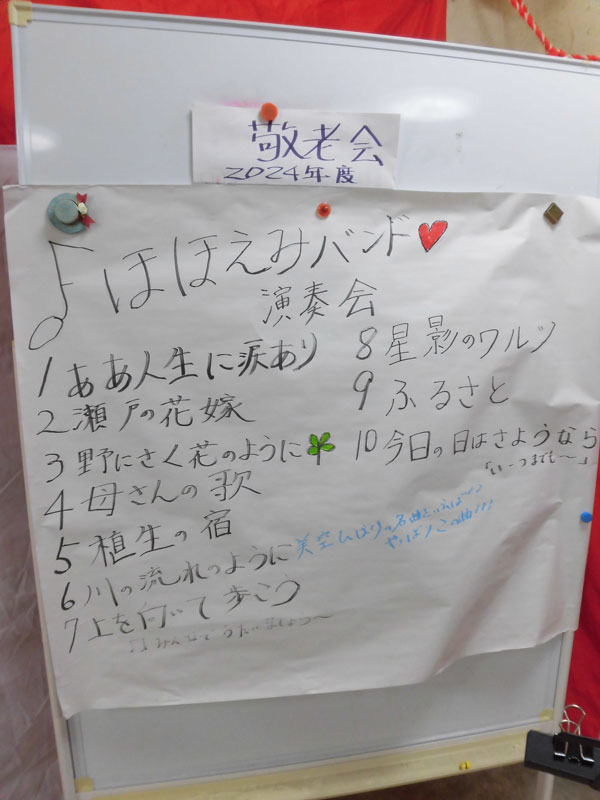 敬老会
2024年度
♪ほほえみバンド♥
演奏会
1 ああ人生に涙あり
2 瀬戸の花嫁
3 野にさく花のように
4 母さんの歌
5 植生の宿
6 川の流れのように 美空ひばりの名曲といえば!?
やっぱりこの曲!!!
7 上を向いて歩こう
♪みんなでうたいましょう〜
8 星影のワルツ
9 ふるさと
10 今日の日はさようなら
「い〜つまでも〜」